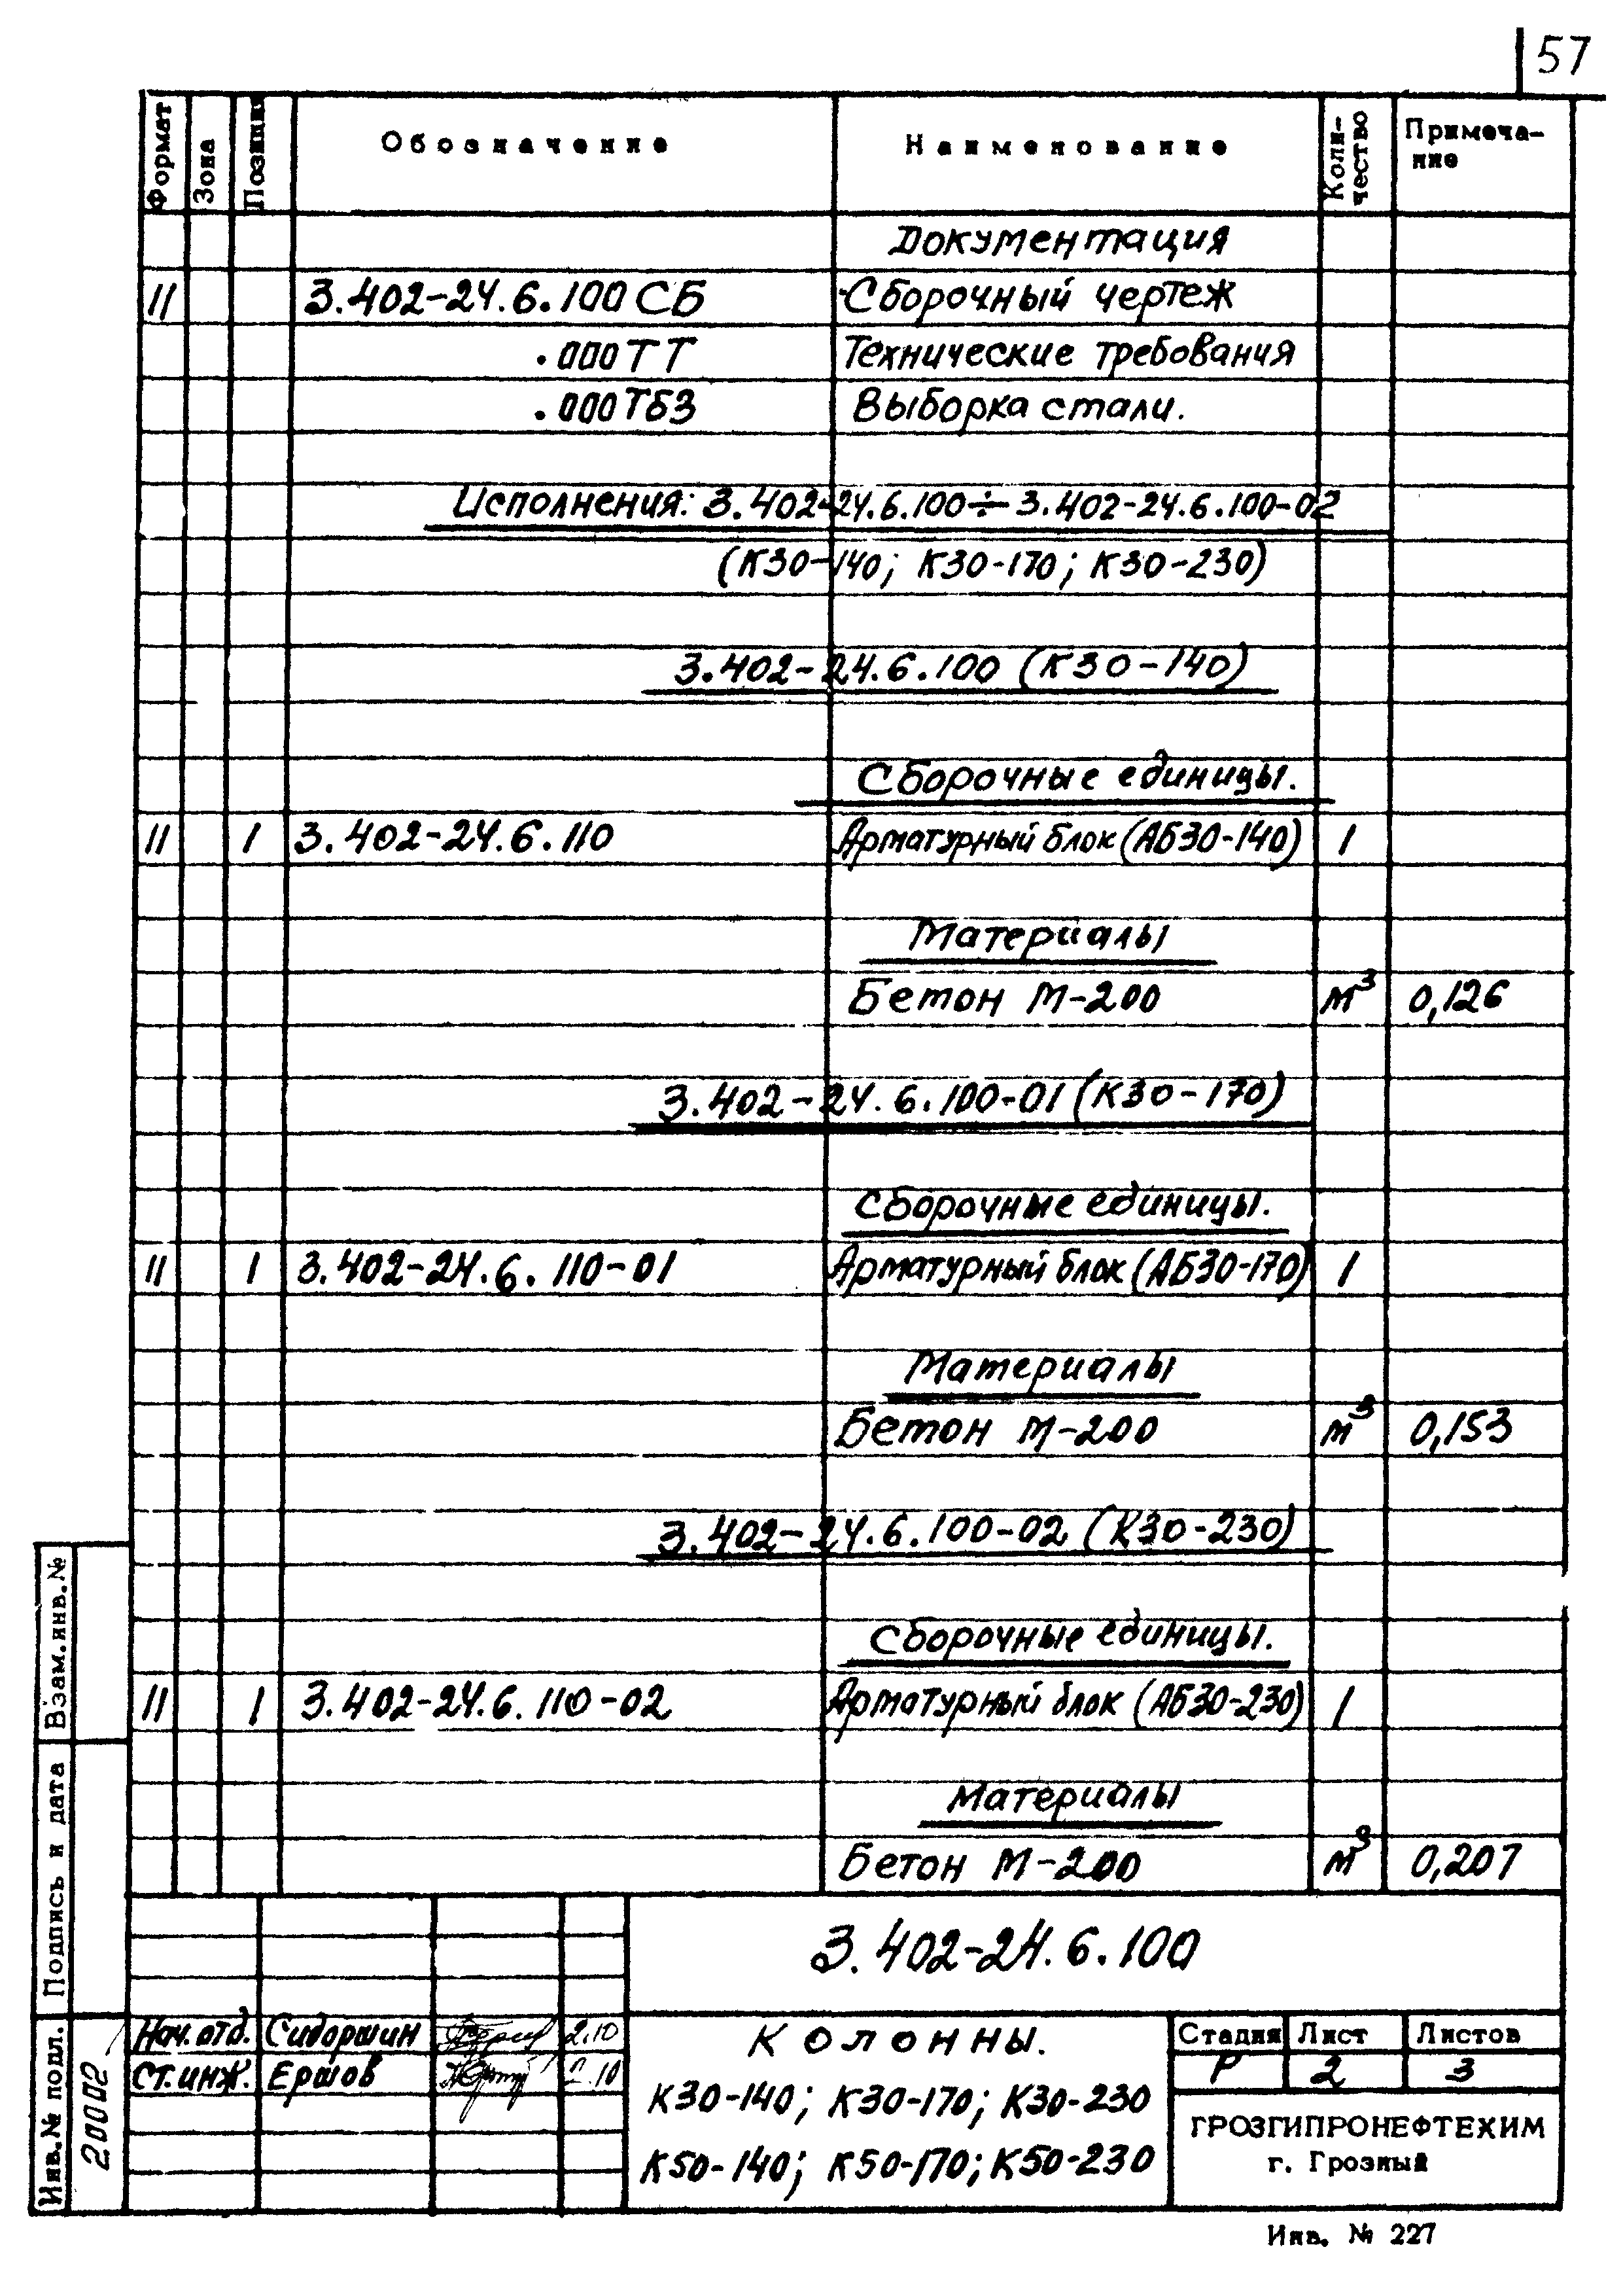 57
Формат Зона Позиция Обозначение Наименование Коли-чество Примеча-ние
Документация
11 3.402-24.6.100 СБ Сборочный чертеж
.000ТТ Технические требования
.000ТБ3 Выборка стали.
Исполнения: 3.402-24.6.100÷3.402-24.6.100-02
(К30-140; К30-170; К30-230)
3.402-24.6.100 (К30-140)
Сборочные единицы.
11 1 3.402-24.6.110 Арматурный блок (АБ30-140) 1
Материалы
Бетон М-200 м³ 0,126
3.402-24.6.100-01 (К30-170)
Сборочные единицы.
11 1 3.402-24.6.110-01 Арматурный блок (АБ30-170) 1
Материалы
Бетон М-200 м³ 0,153
3.402-24.6.100-02 (К30-230)
Сборочные единицы.
11 1 3.402-24.6.110-02 Арматурный блок (АБ30-230) 1
Материалы
Бетон М-200 м³ 0,207
Взам.инв.№
Подпись и дата
Инв.№ подл.
20002
3.402-24.6.100
Нач.отд. Сидоршин 2.10
Ст.инж. Ершов 2.10
Колонны.
К30-140; К30-170; К30-230
К50-140; К50-170; К50-230
Стадия Лист Листов
Р 2 3
ГРОЗГИПРОНЕФТЕХИМ
г. Грозный
Инв. № 227